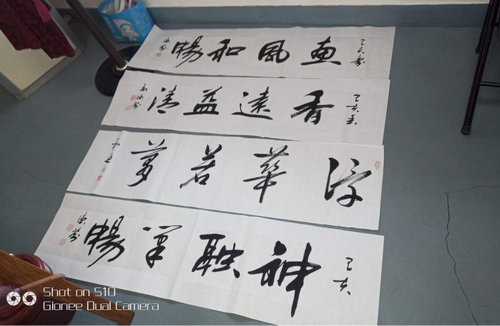 己亥春 惠風和暢
己亥春 香遠益清
浮華若夢
己亥 神融筆暢
Shot on S10
Gionee Dual Camera